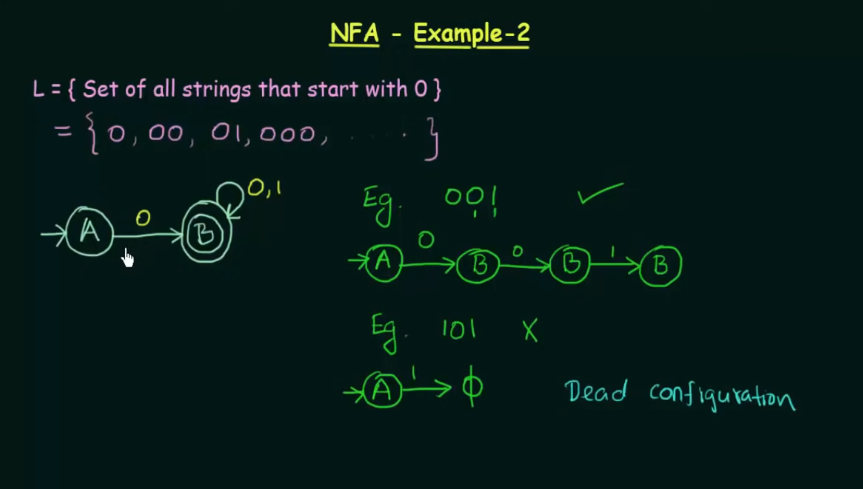 NFA - Example-2
L = { Set of all strings that start with 0 }
= { 0, 00, 01, 000, ..... }
A 0 B 0,1
Eg. 001 ✓
A 0 B 0 B 1 B
Eg. 101 X
A 1 ϕ
Dead configuration